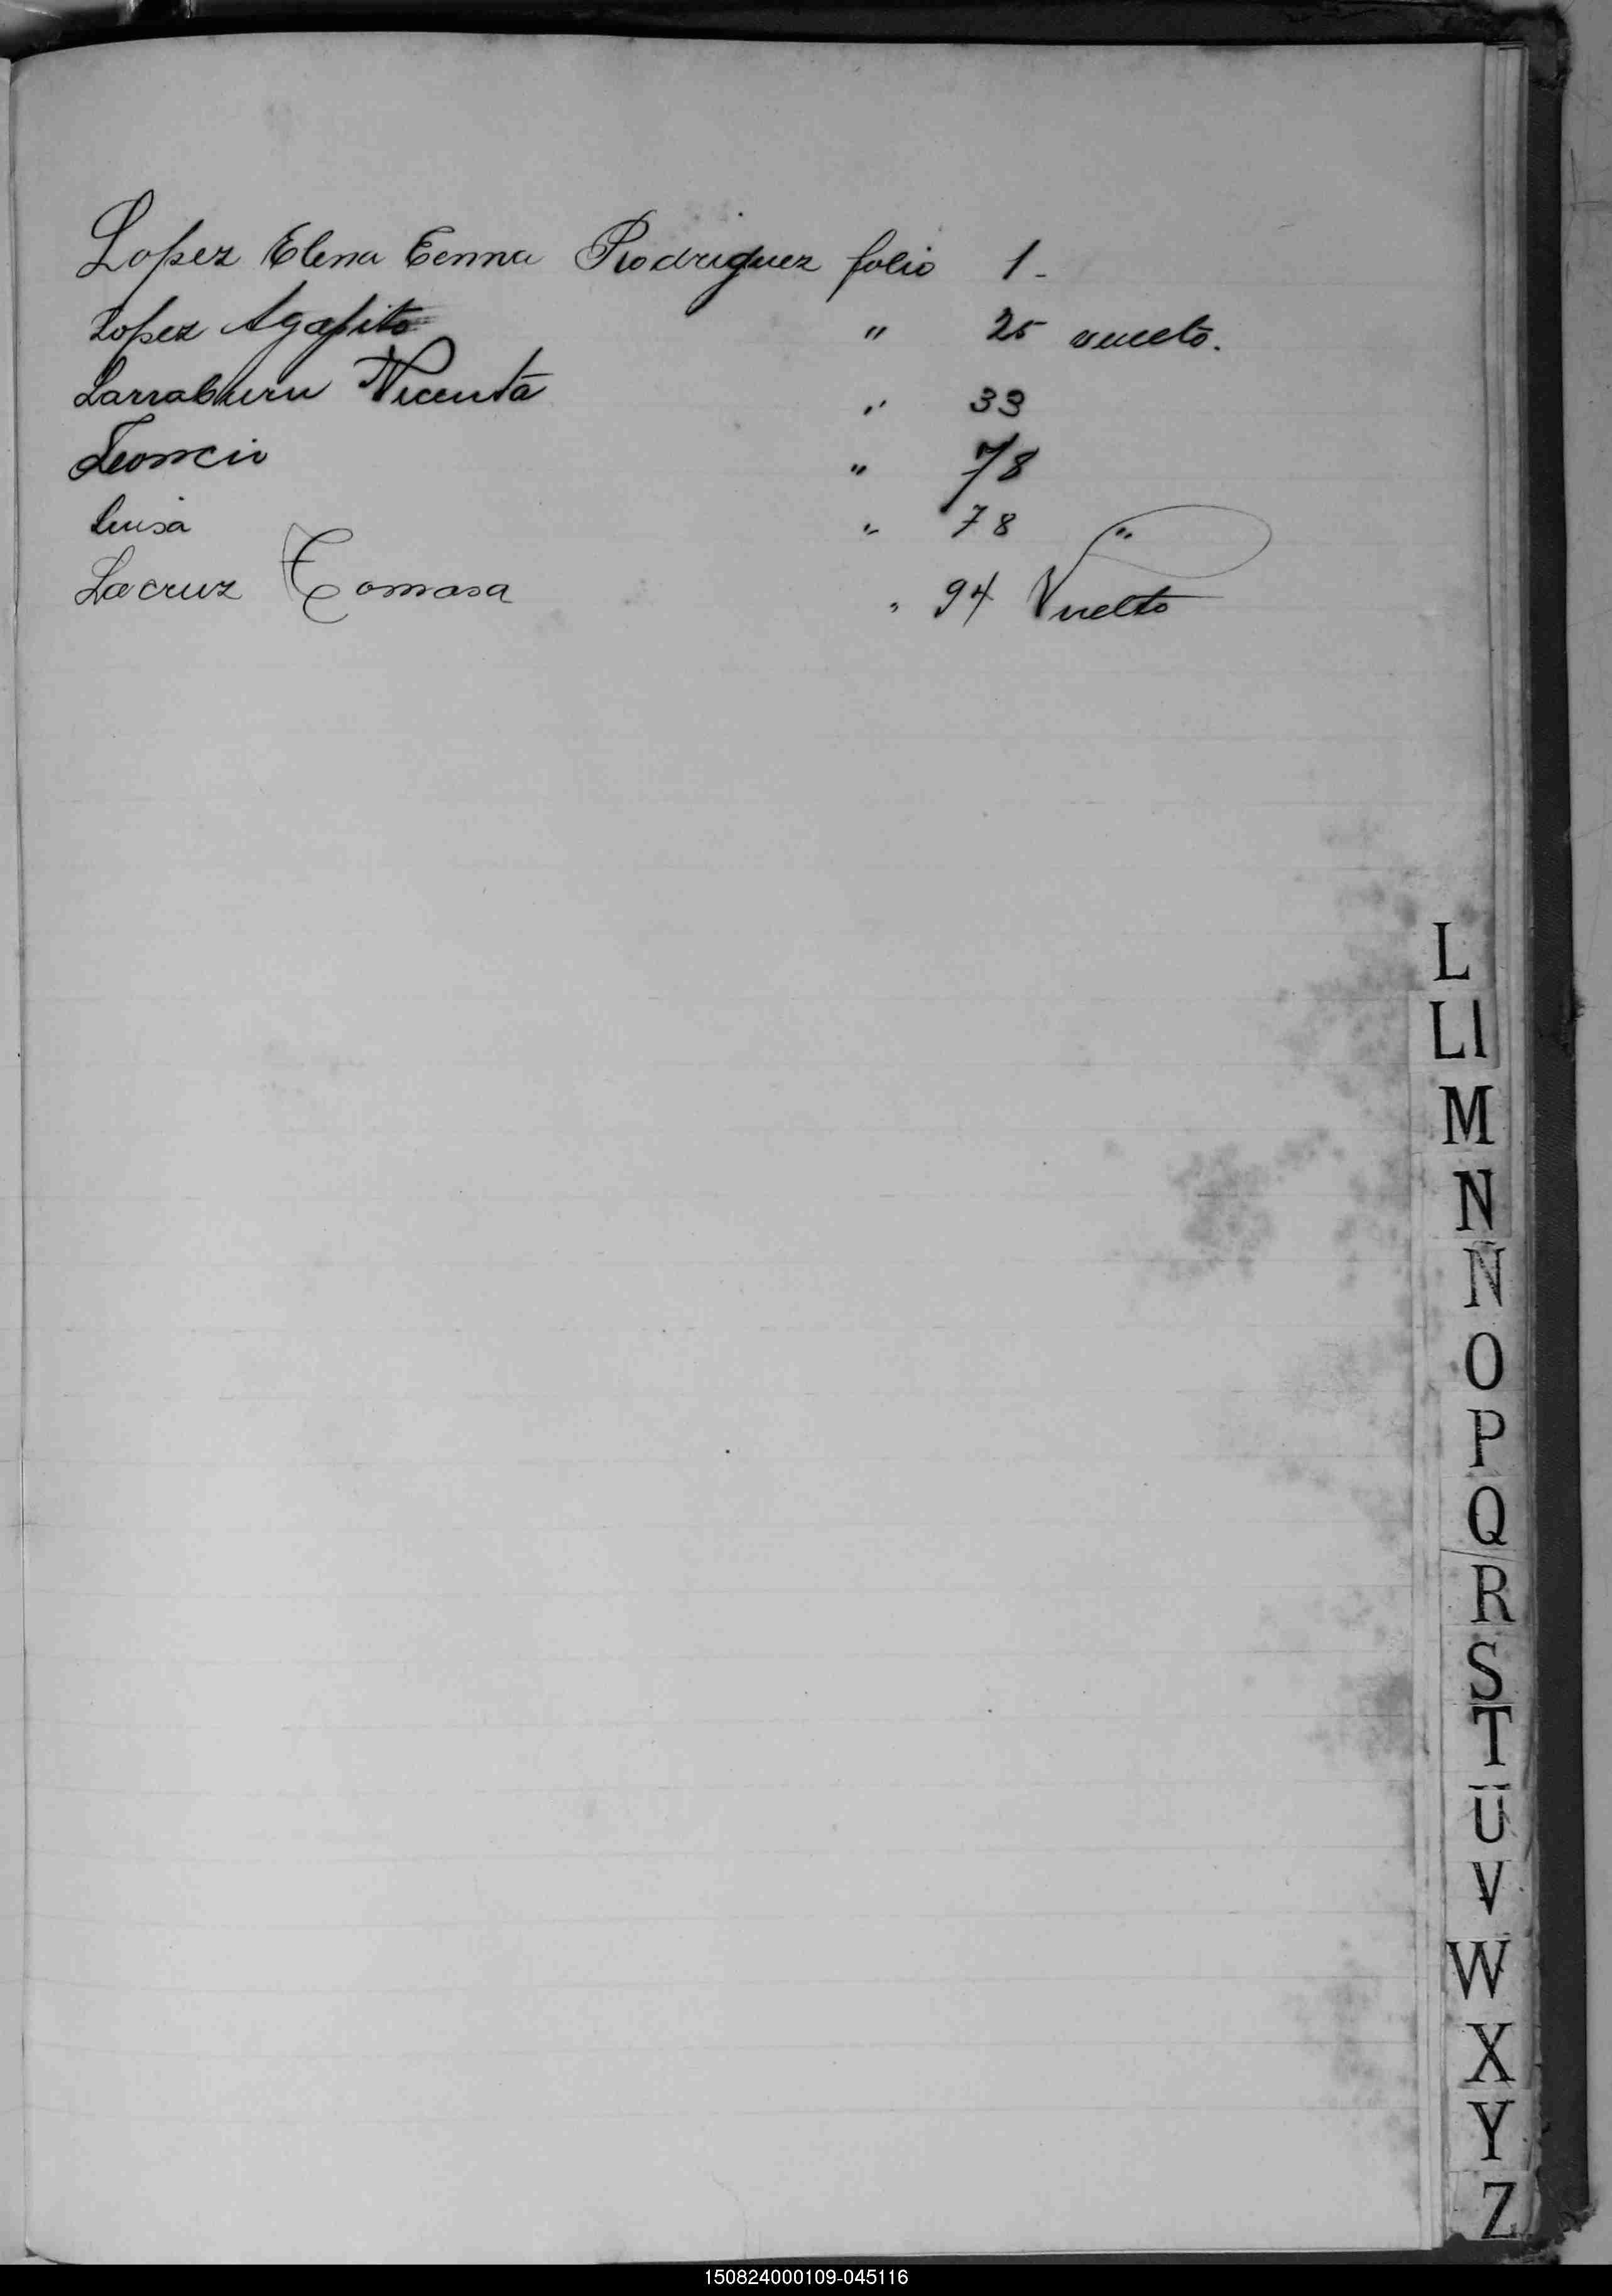 Lopez Elena Emma Rodriguez folio 1-
Lopez Agapito " 25 vuelto.
Larraburu Vicenta " 33
Leoncio " 78
Luisa " 78 "
Lacruz Tomasa " 94 Vuelto
L
Ll
M
N
Ñ
O
P
Q
R
S
T
U
V
W
X
Y
Z
150824000109-045116